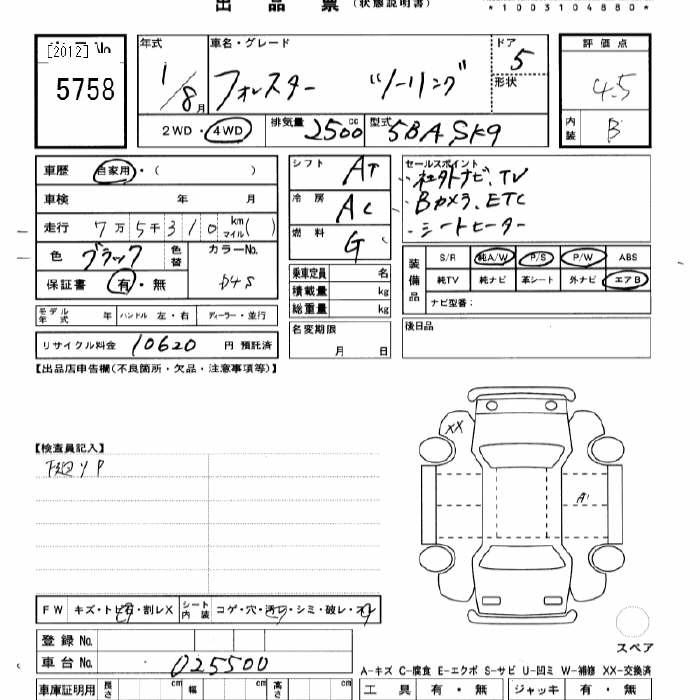 出品票 (状態説明書)
*1003104880*
[2012] No
5758
年式 1/8月
車名・グレード フォレスター ツーリング
ドア 5
形状
評価点 4.5
内装 B
2WD・4WD
排気量 2500 cc
型式 5BA SK9
車歴 自家用・( )
車検 年 月
走行 7万5千310 km マイル( )
色 ブラック 色替
カラーNo. D4S
保証書 有・無
シフト AT
冷房 AC
燃料 G
乗車定員 名
積載量 kg
総重量 kg
名変期限 月 日
セールスポイント
・社外ナビ、TV
・Bカメラ、ETC
・シートヒーター
装備品
S/R 純A/W P/S P/W ABS
純TV 純ナビ 革シート 外ナビ エアB
ナビ型番:
後日品
モデル年式 年 ハンドル 左・右 ディーラー・並行
リサイクル料金 10620 円 預託済
【出品店申告欄(不良箇所・欠品・注意事項等)】
【検査員記入】
下廻りP
XX
A1
FW キズ・トビ石・割レX
シート内装 コゲ・穴・汚れ・シミ・破レ・スレ
登録No.
車台No. 025500
スペア
A-キズ C-腐食 E-エクボ S-サビ U-凹ミ W-補修 XX-交換済
車庫証明用 長さ cm 幅 cm 高さ cm
工具 有・無 ジャッキ 有・無